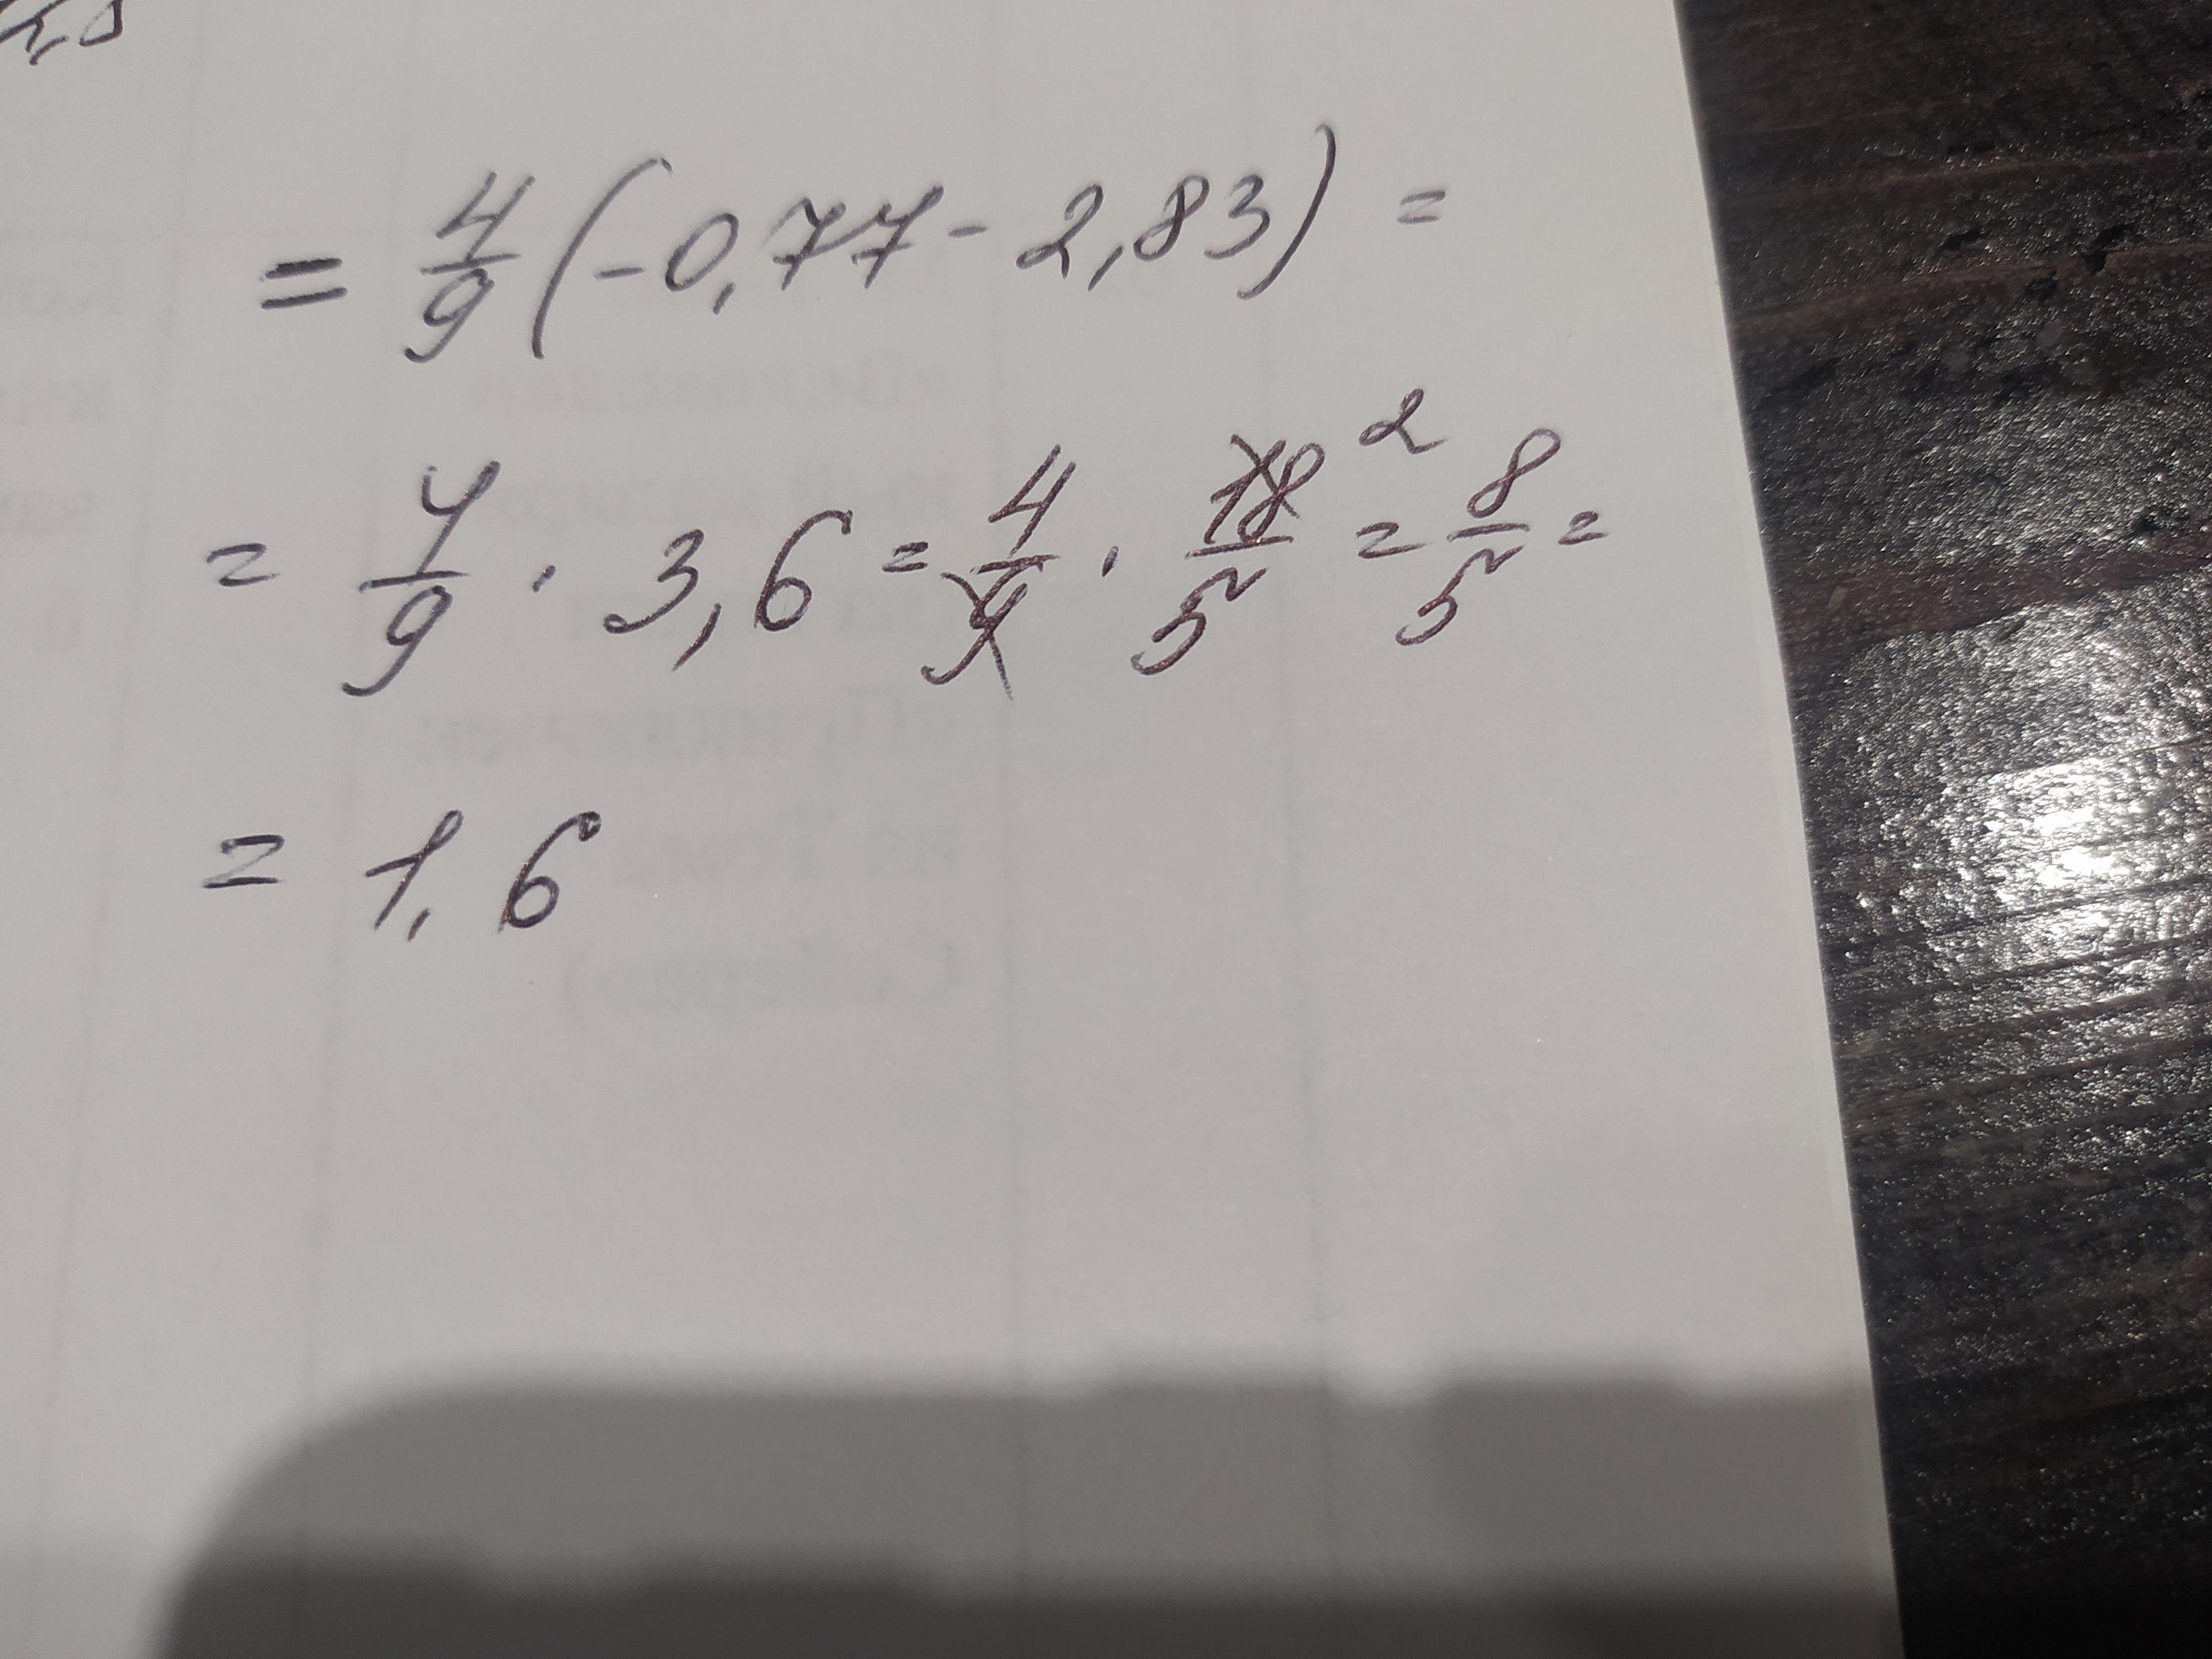 = 4/9 (-0,77 - 2,83) =
= 4/9 · 3,6 = 4/9 · 18/5 2 = 8/5 =
= 1,6